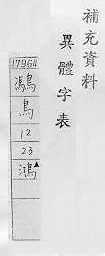 補充資料
異體字表
17964
鳥
12
23
鴻▲